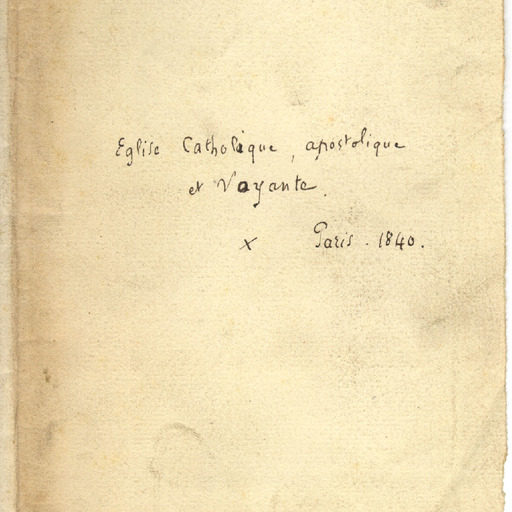 Eglise Catholique, apostolique
et Voyante.
x Paris. 1840.